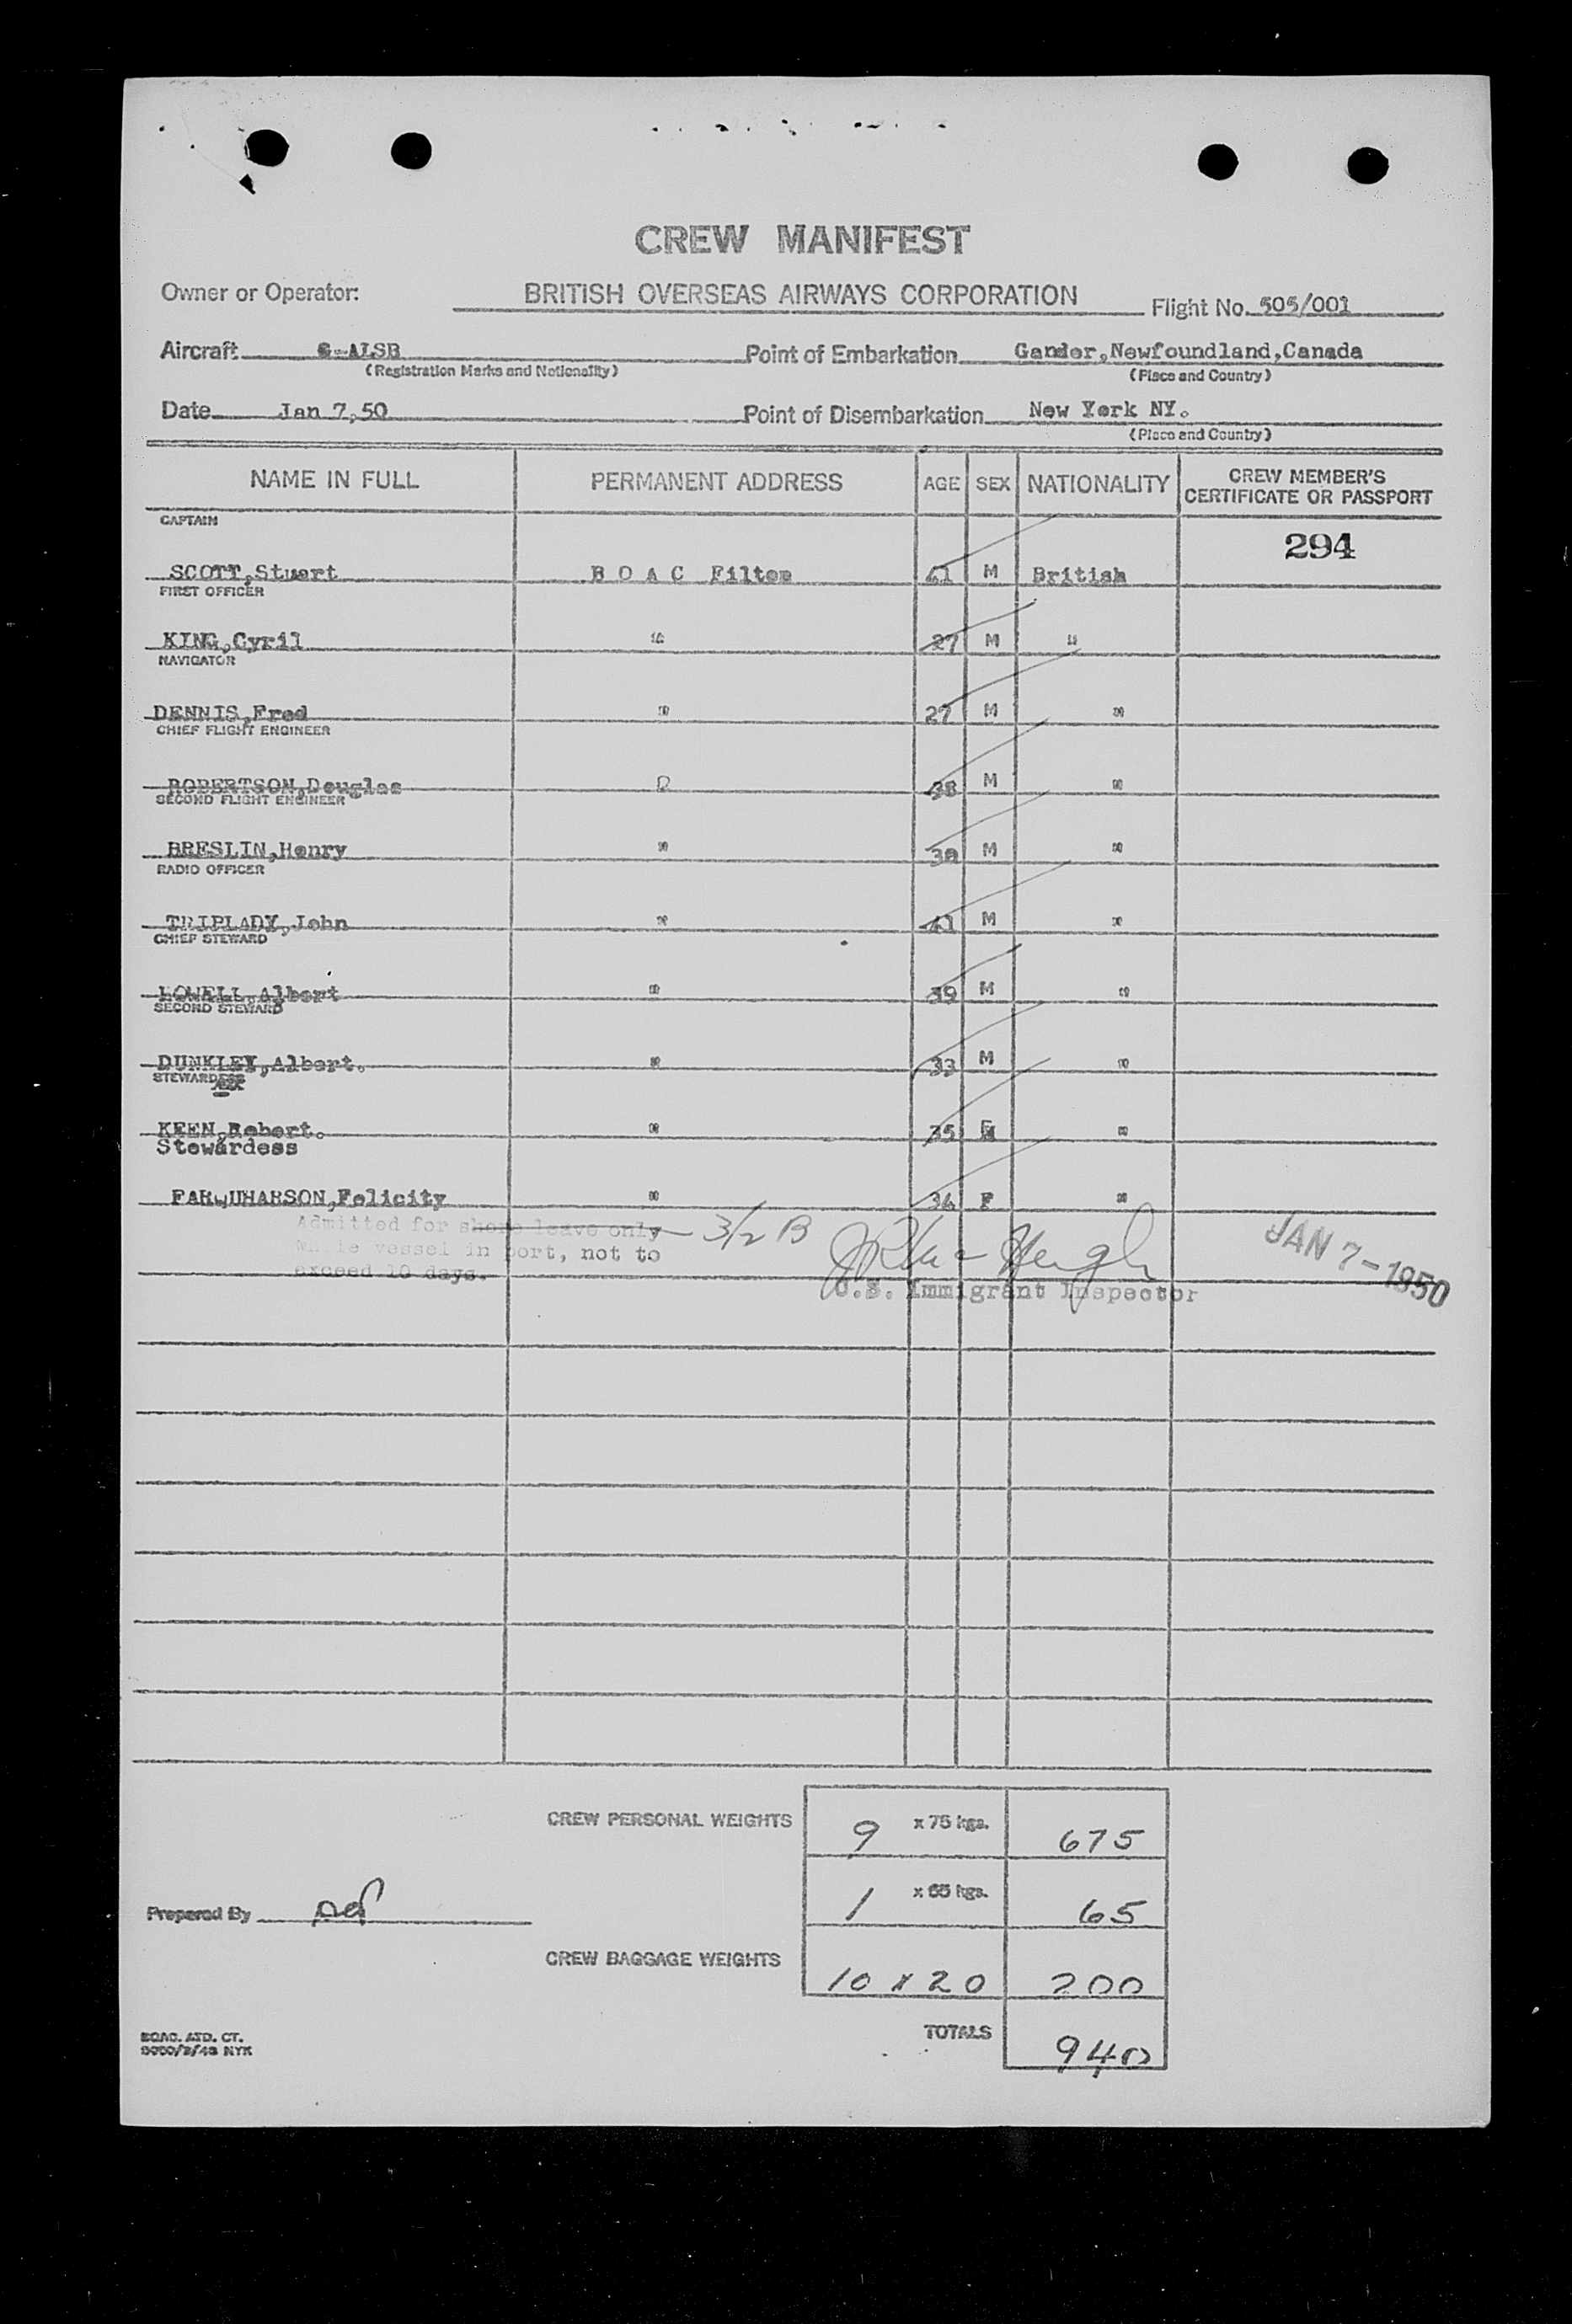 CREW MANIFEST
Owner or Operator: BRITISH OVERSEAS AIRWAYS CORPORATION Flight No. 505/001
Aircraft G-ALSB Point of Embarkation Gander,Newfoundland,Canada
(Registration Marks and Nationality) (Place and Country)
Date Jan 7,50 Point of Disembarkation New York NY.
(Place and Country)
NAME IN FULL PERMANENT ADDRESS AGE SEX NATIONALITY CREW MEMBER'S CERTIFICATE OR PASSPORT
CAPTAIN
294
SCOTT,Stuart B O A C Filton 41 M British
FIRST OFFICER
KING,Cyril " 27 M "
NAVIGATOR
DENNIS,Fred " 27 M "
CHIEF FLIGHT ENGINEER
ROBERTSON,Douglas " 38 M "
SECOND FLIGHT ENGINEER
BRESLIN,Henry " 38 M "
RADIO OFFICER
TRIPLADY,John " 41 M "
CHIEF STEWARD
LOWELL,Albert " 39 M "
SECOND STEWARD
DUNKLEY,Albert. " 33 M "
STEWARD
KEEN,Robert. " 35 M "
Stewardess
FARQUHARSON,Felicity " 34 F "
Admitted for shore leave only 3/2 B
while vessel in port, not to
exceed 10 days.
JAN 7-1950
U.S. Immigrant Inspector
CREW PERSONAL WEIGHTS 9 x 75 kgs. 675
1 x 65 kgs. 65
Prepared By
CREW BAGGAGE WEIGHTS 10 x 20 200
TOTALS 940
BOAC. ATD. CT.
NYK